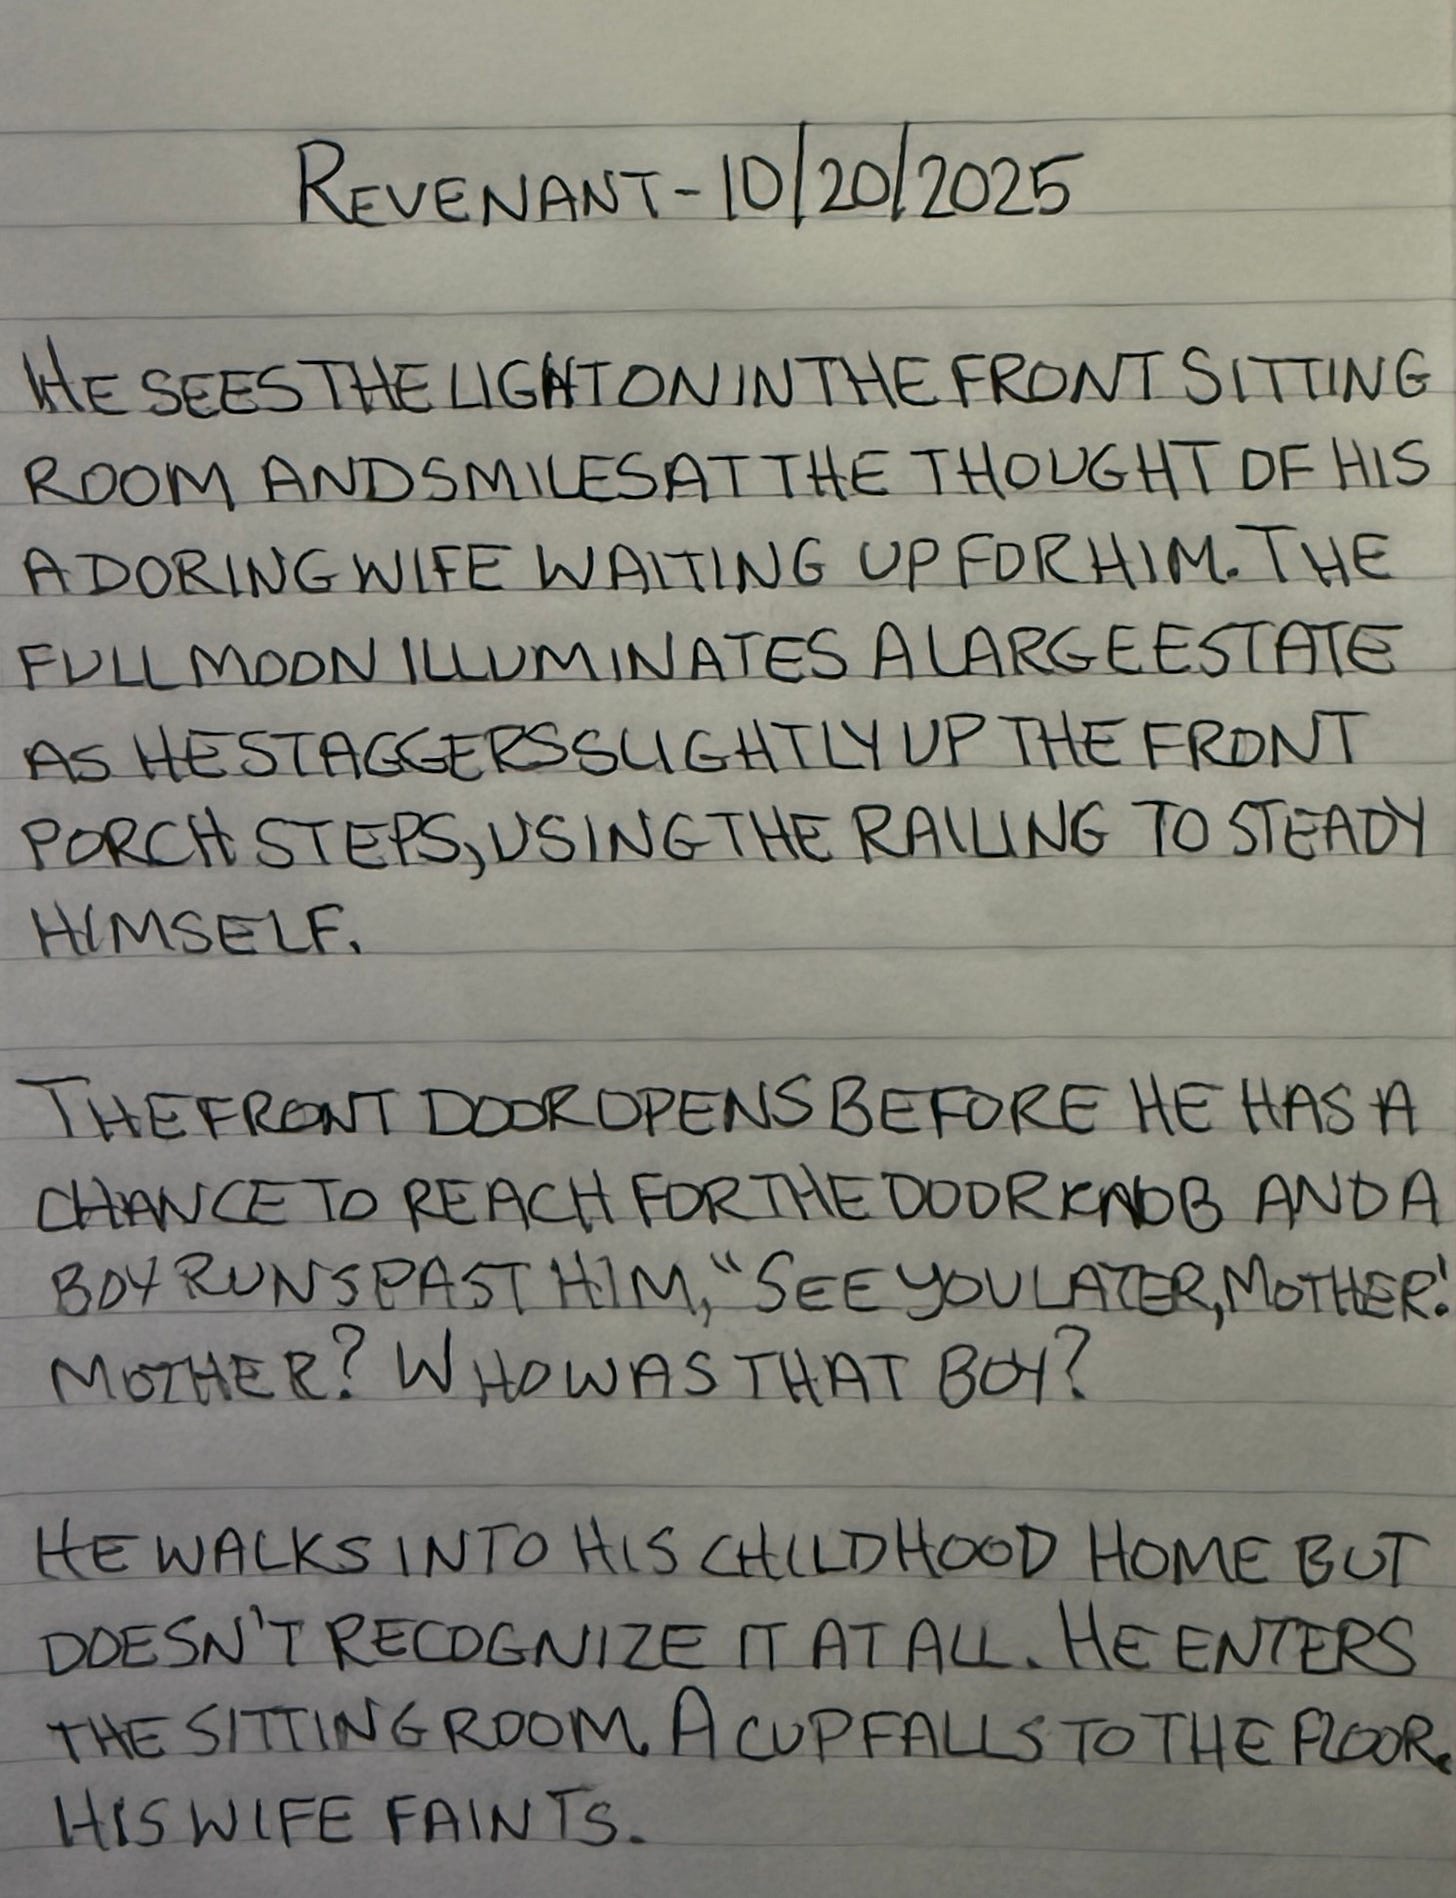 REVENANT - 10/20/2025
HE SEES THE LIGHT ON IN THE FRONT SITTING
ROOM AND SMILES AT THE THOUGHT OF HIS
ADORING WIFE WAITING UP FOR HIM. THE
FULL MOON ILLUMINATES A LARGE ESTATE
AS HE STAGGERS SLIGHTLY UP THE FRONT
PORCH STEPS, USING THE RAILING TO STEADY
HIMSELF.
THE FRONT DOOR OPENS BEFORE HE HAS A
CHANCE TO REACH FOR THE DOOR KNOB AND A
BOY RUNS PAST HIM, "SEE YOU LATER, MOTHER!
MOTHER? WHO WAS THAT BOY?
HE WALKS INTO HIS CHILDHOOD HOME BUT
DOESN'T RECOGNIZE IT AT ALL. HE ENTERS
THE SITTING ROOM. A CUP FALLS TO THE FLOOR.
HIS WIFE FAINTS.